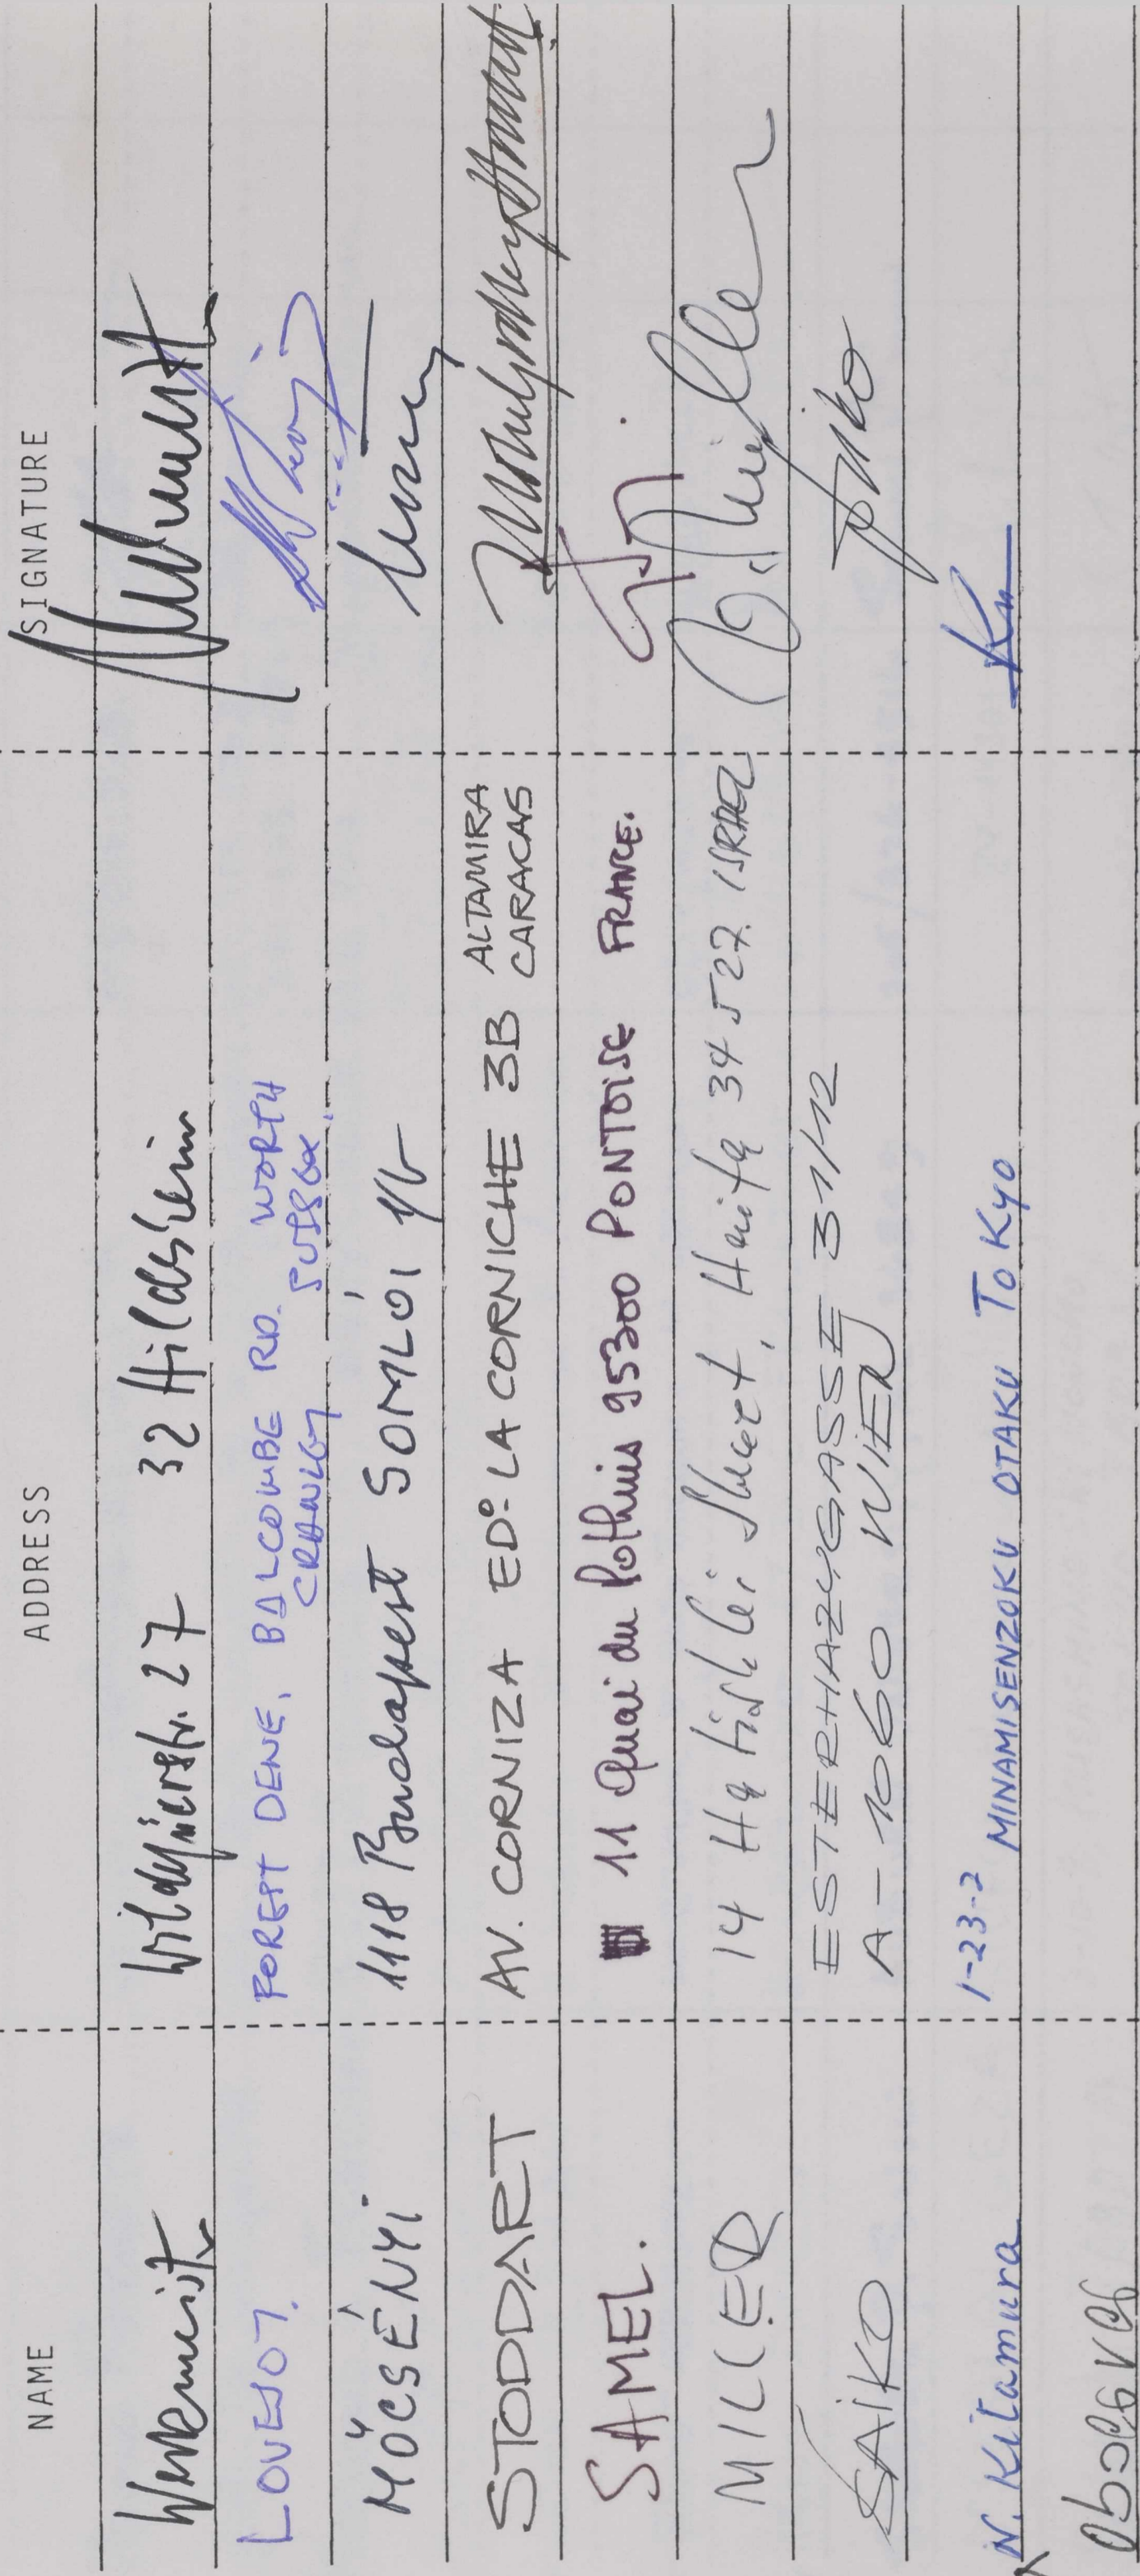 NAME ADDRESS SIGNATURE
Werkmeister Wildjägerstr. 27 32 Hildesheim
LOVEJOY. FOREST DENE, BALCOMBE RD. WORTH
CRAWLEY SUSSEX.
MÖCSÉNYI 1118 Budapest SOMLÓI 1/b
STODDART AV. CORNIZA EDº LA CORNICHE 3B ALTAMIRA
CARACAS
SAMEL. 11 Quai du Pothuis 95300 PONTOISE FRANCE.
MILLER 14 Hatishbi Street, Haifa 34527. ISRAEL D. Miller
SAIKO ESTERHAZYGASSE 31/12 Saiko
A-1060 WIEN
N. Kitamura 1-23-2 MINAMISENZOKU OTAKU TOKYO